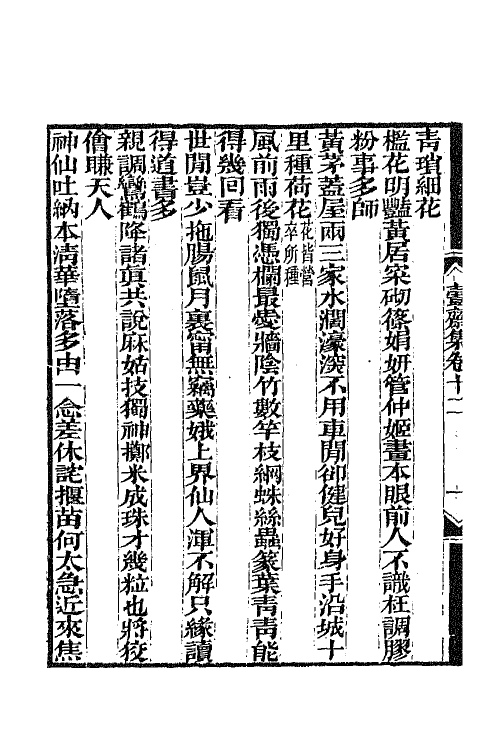 壹齋集卷十二
十
青瑣細花
檻花明豔黃居寀砌篠娟妍管仲姬畫本眼前人不識枉調膠
粉事多師
黃茅蓋屋兩三家水濶濠深不用車閒卻健兒好身手沿城十
里種荷花花皆營卒所種
風前雨後獨憑欄最愛牆陰竹數竿枝綱蛛絲蟲篆葉靑靑能
得幾回看
世閒豈少拖腸鼠月裏甯無竊藥娥上界仙人渾不解只緣讀
得道書多
親調鸞鶴降諸眞共說麻姑技獨神擲米成珠才幾粒也將狡
儈賺天人
神仙吐納本淸華墮落多由一念差休詫揠苗何太急近來焦